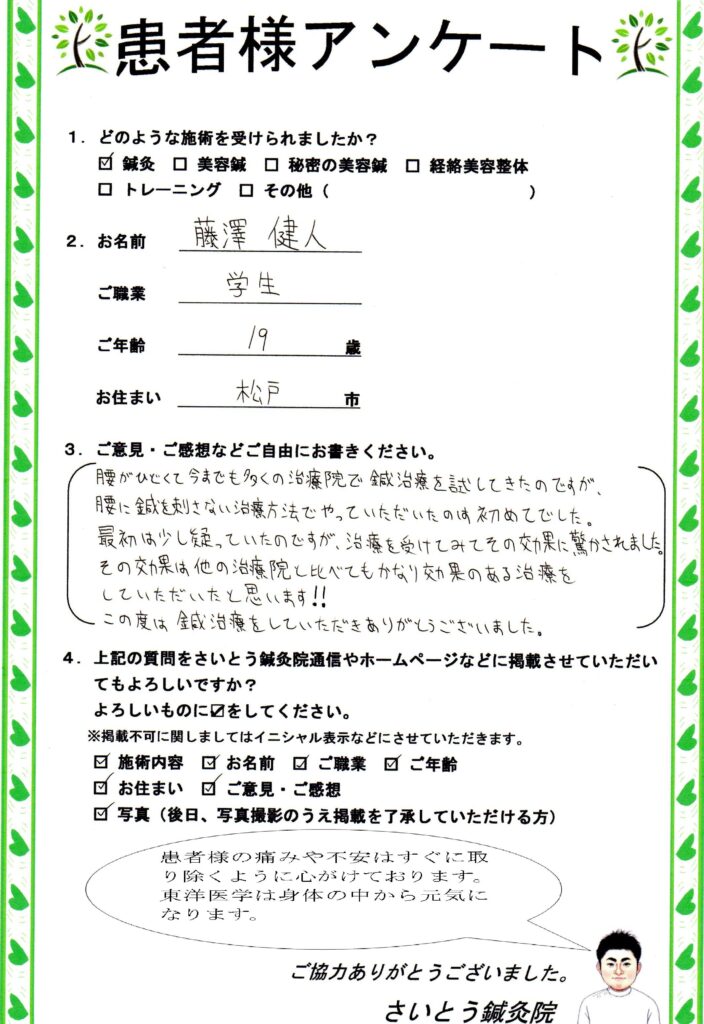 患者様アンケート
1．どのような施術を受けられましたか？
☑ 鍼灸 □ 美容鍼 □ 秘密の美容鍼 □ 経絡美容整体
□ トレーニング □ その他（ ）
2．お名前 藤澤 健人
ご職業 学生
ご年齢 19 歳
お住まい 松戸 市
3．ご意見・ご感想などご自由にお書きください。
腰がひどくて今までも多くの治療院で鍼治療を試してきたのですが、
腰に鍼を刺さない治療方法でやっていただいたのは初めてでした。
最初は少し疑っていたのですが、治療を受けてみてその効果に驚かされました。
その効果は他の治療院と比べてもかなり効果のある治療を
していただいたと思います!!
この度は鍼治療をしていただきありがとうございました。
4．上記の質問をさいとう鍼灸院通信やホームページなどに掲載させていただい
てもよろしいですか？
よろしいものに☑をしてください。
※掲載不可に関しましてはイニシャル表示などにさせていただきます。
☑ 施術内容 ☑ お名前 ☑ ご職業 ☑ ご年齢
☑ お住まい ☑ ご意見・ご感想
☑ 写真（後日、写真撮影のうえ掲載を了承していただける方）
患者様の痛みや不安はすぐに取
り除くように心がけております。
東洋医学は身体の中から元気に
なります。
ご協力ありがとうございました。
さいとう鍼灸院